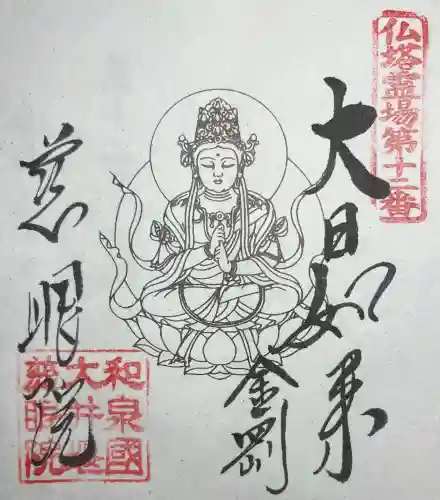 仏塔霊場第十二番
大日如来
金剛
慈眼院
和泉國
大井
慈眼院